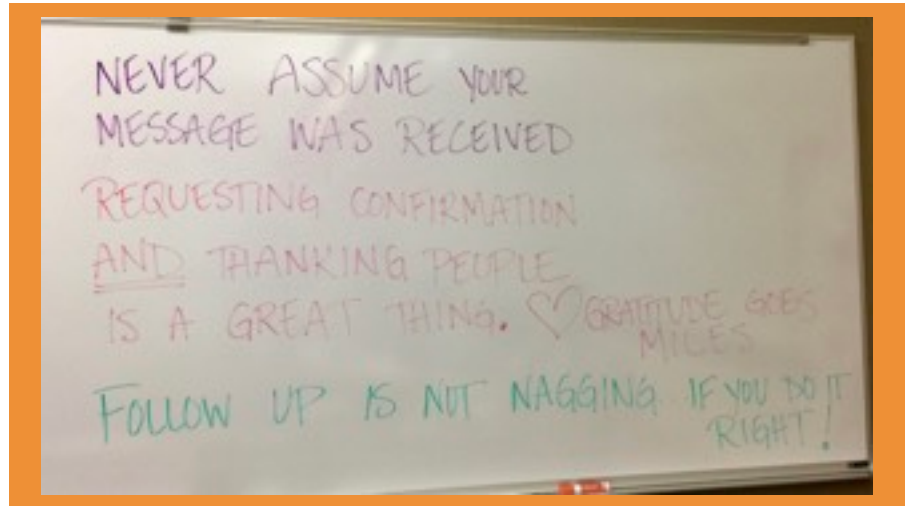 NEVER ASSUME YOUR
MESSAGE WAS RECEIVED
REQUESTING CONFIRMATION
AND THANKING PEOPLE
IS A GREAT THING. ♡ GRATITUDE GOES
MILES
FOLLOW UP IS NOT NAGGING IF YOU DO IT
RIGHT!